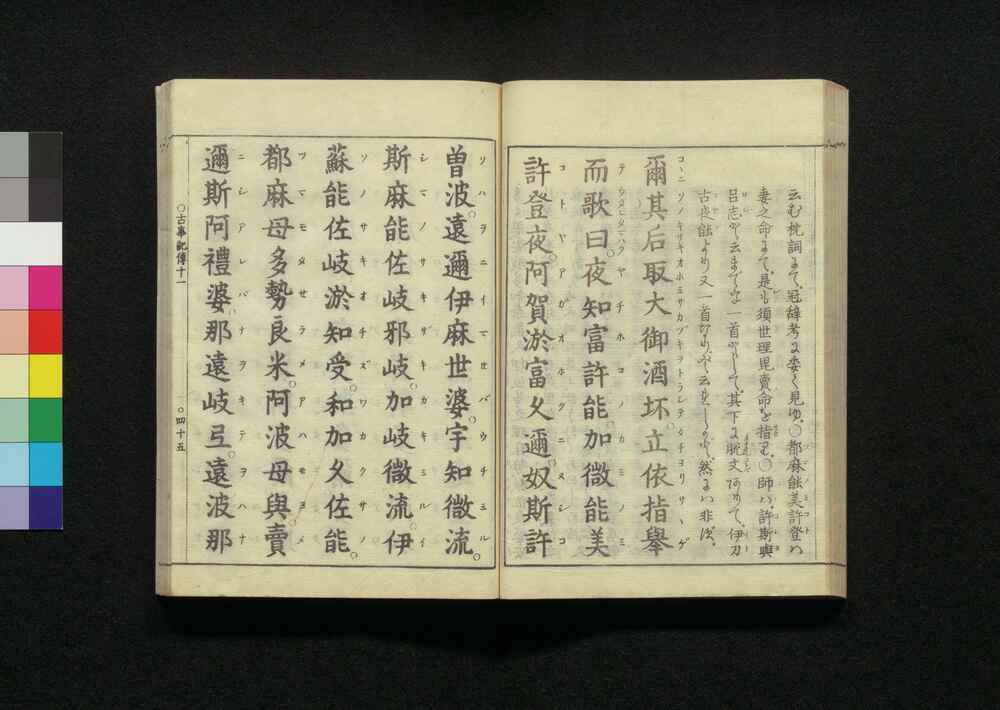 云む枕詞にて、冠辞考に委く見ゆ、○都麻能美許登は
妻之命にて、是も須世理毘賣命を指す、○師は、許斯與
呂志と云まで一首として、其下に脱文ありて、伊刀
古夜能より又一首なりと云れしかど、然には非ず、
爾其后取大御酒坏立依指擧
而歌曰夜知富許能加微能美
許登夜阿賀淤富久邇奴斯許
曾波遠邇伊麻世婆宇知微流
斯麻能佐岐邪岐加岐微流伊
蘇能佐岐淤知受和加久佐能
都麻母多勢良米阿波母與賣
邇斯阿禮婆那遠岐弖遠波那
○古事記傳十一
○四十五